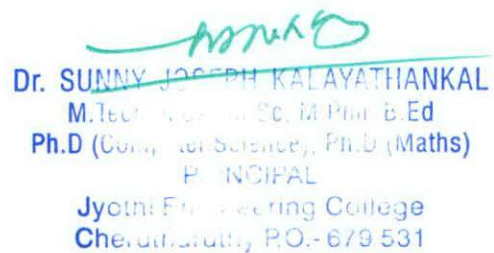 Dr. SUNNY JOSEPH KALAYATHANKAL
M.Tech, Sc, M.Phil, B.Ed
Ph.D (Computer Science), Ph.D (Maths)
PRINCIPAL
Jyothi Engineering College
Cheruthuruthy P.O.- 679 531